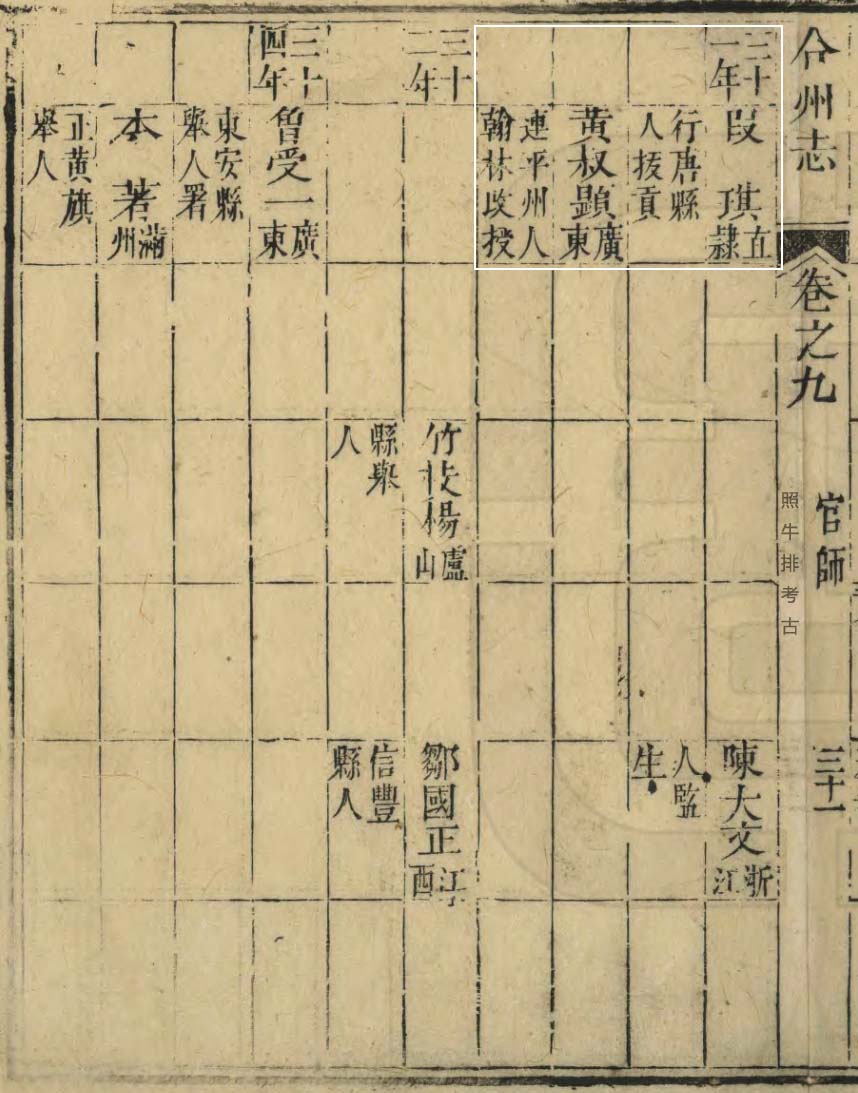 合州志
卷之九
官師
三十一
照牛排考古
三十一年
段琪直隸
行唐縣人拔貢
黃叔顯廣東
連平州人翰林改授
三十二年
三十四年
曾受一廣東
東安縣舉人署
本著滿州
正黃旗舉人
竹枝楊盧山
縣舉人
陳大文浙江
人監生
鄒國正江西
信豐縣人